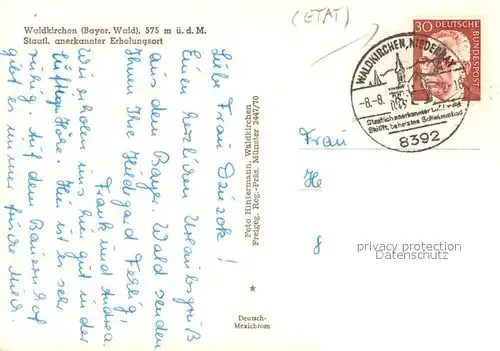 Waldkirchen (Bayer. Wald), 575 m ü. d. M.
Staatl. anerkannter Erholungsort
Liebe Frau
Einen herzlichen Urlaubsgruß
aus dem Bayer. Wald senden
Ihnen Ihre Hildegard Fehlig,
Frank und Andrea.
Wir erholen uns hier gut in der
Hier ist es sehr
ruhig. Auf dem Bauernhof
gibt es immer frische Milch.
Foto Hintermann, Waldkirchen
Freigeg. Reg.-Präs. Münster 2447/70
Deutsch-
Mexichrom
(ETAT)
30 DEUTSCHE
BUNDESPOST
WALDKIRCHEN, NIEDERBAY
-8.-8. 18
Staatlich anerkannter
beheiztes Schwimmbad
8392
Frau
He
8
privacy protection
Datenschutz